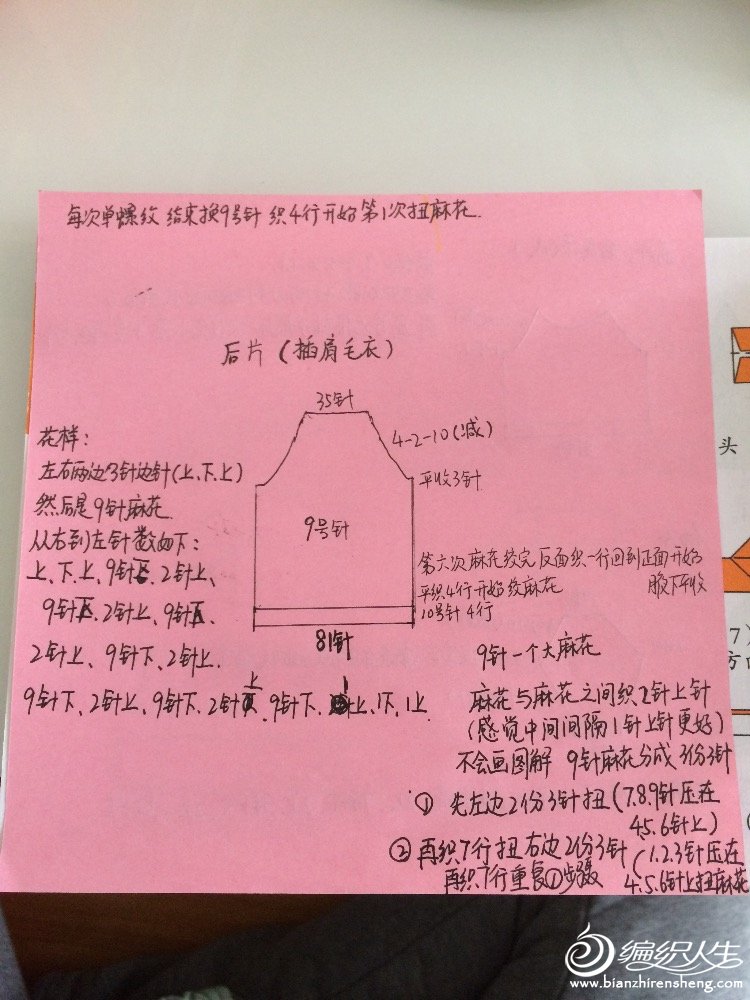 每次单螺纹 结束换9号针 织4行开始第1次扭麻花.
后片(插肩毛衣)
35针
4-2-10(减)
平收3针
9号针
花样:
左右两边3针边针(上、下、上)
然后是9针麻花
从右到左针数如下:
上、下、上、9针下、2针上、
9针下、2针上、9针下、
2针上、9针下、2针上、
9针下、2针上、9针下、2针上、9针下、1上、1下、1上
第六次麻花绞完反面织一行回到正面开始
腋下平收
平织4行开始绞麻花
10号针4行
81针
9针一个大麻花
麻花与麻花之间织2针上针
(感觉中间间隔1针上针更好)
不会画图解 9针麻花分成3份3针
① 先左边2份3针扭(7.8.9针压在
4.5.6针上)
② 再织7行扭右边2份3针(1.2.3针压在
4.5.6针上扭麻花
再织7行重复①步骤
头
7
方
编织人生
www.bianzhirensheng.com